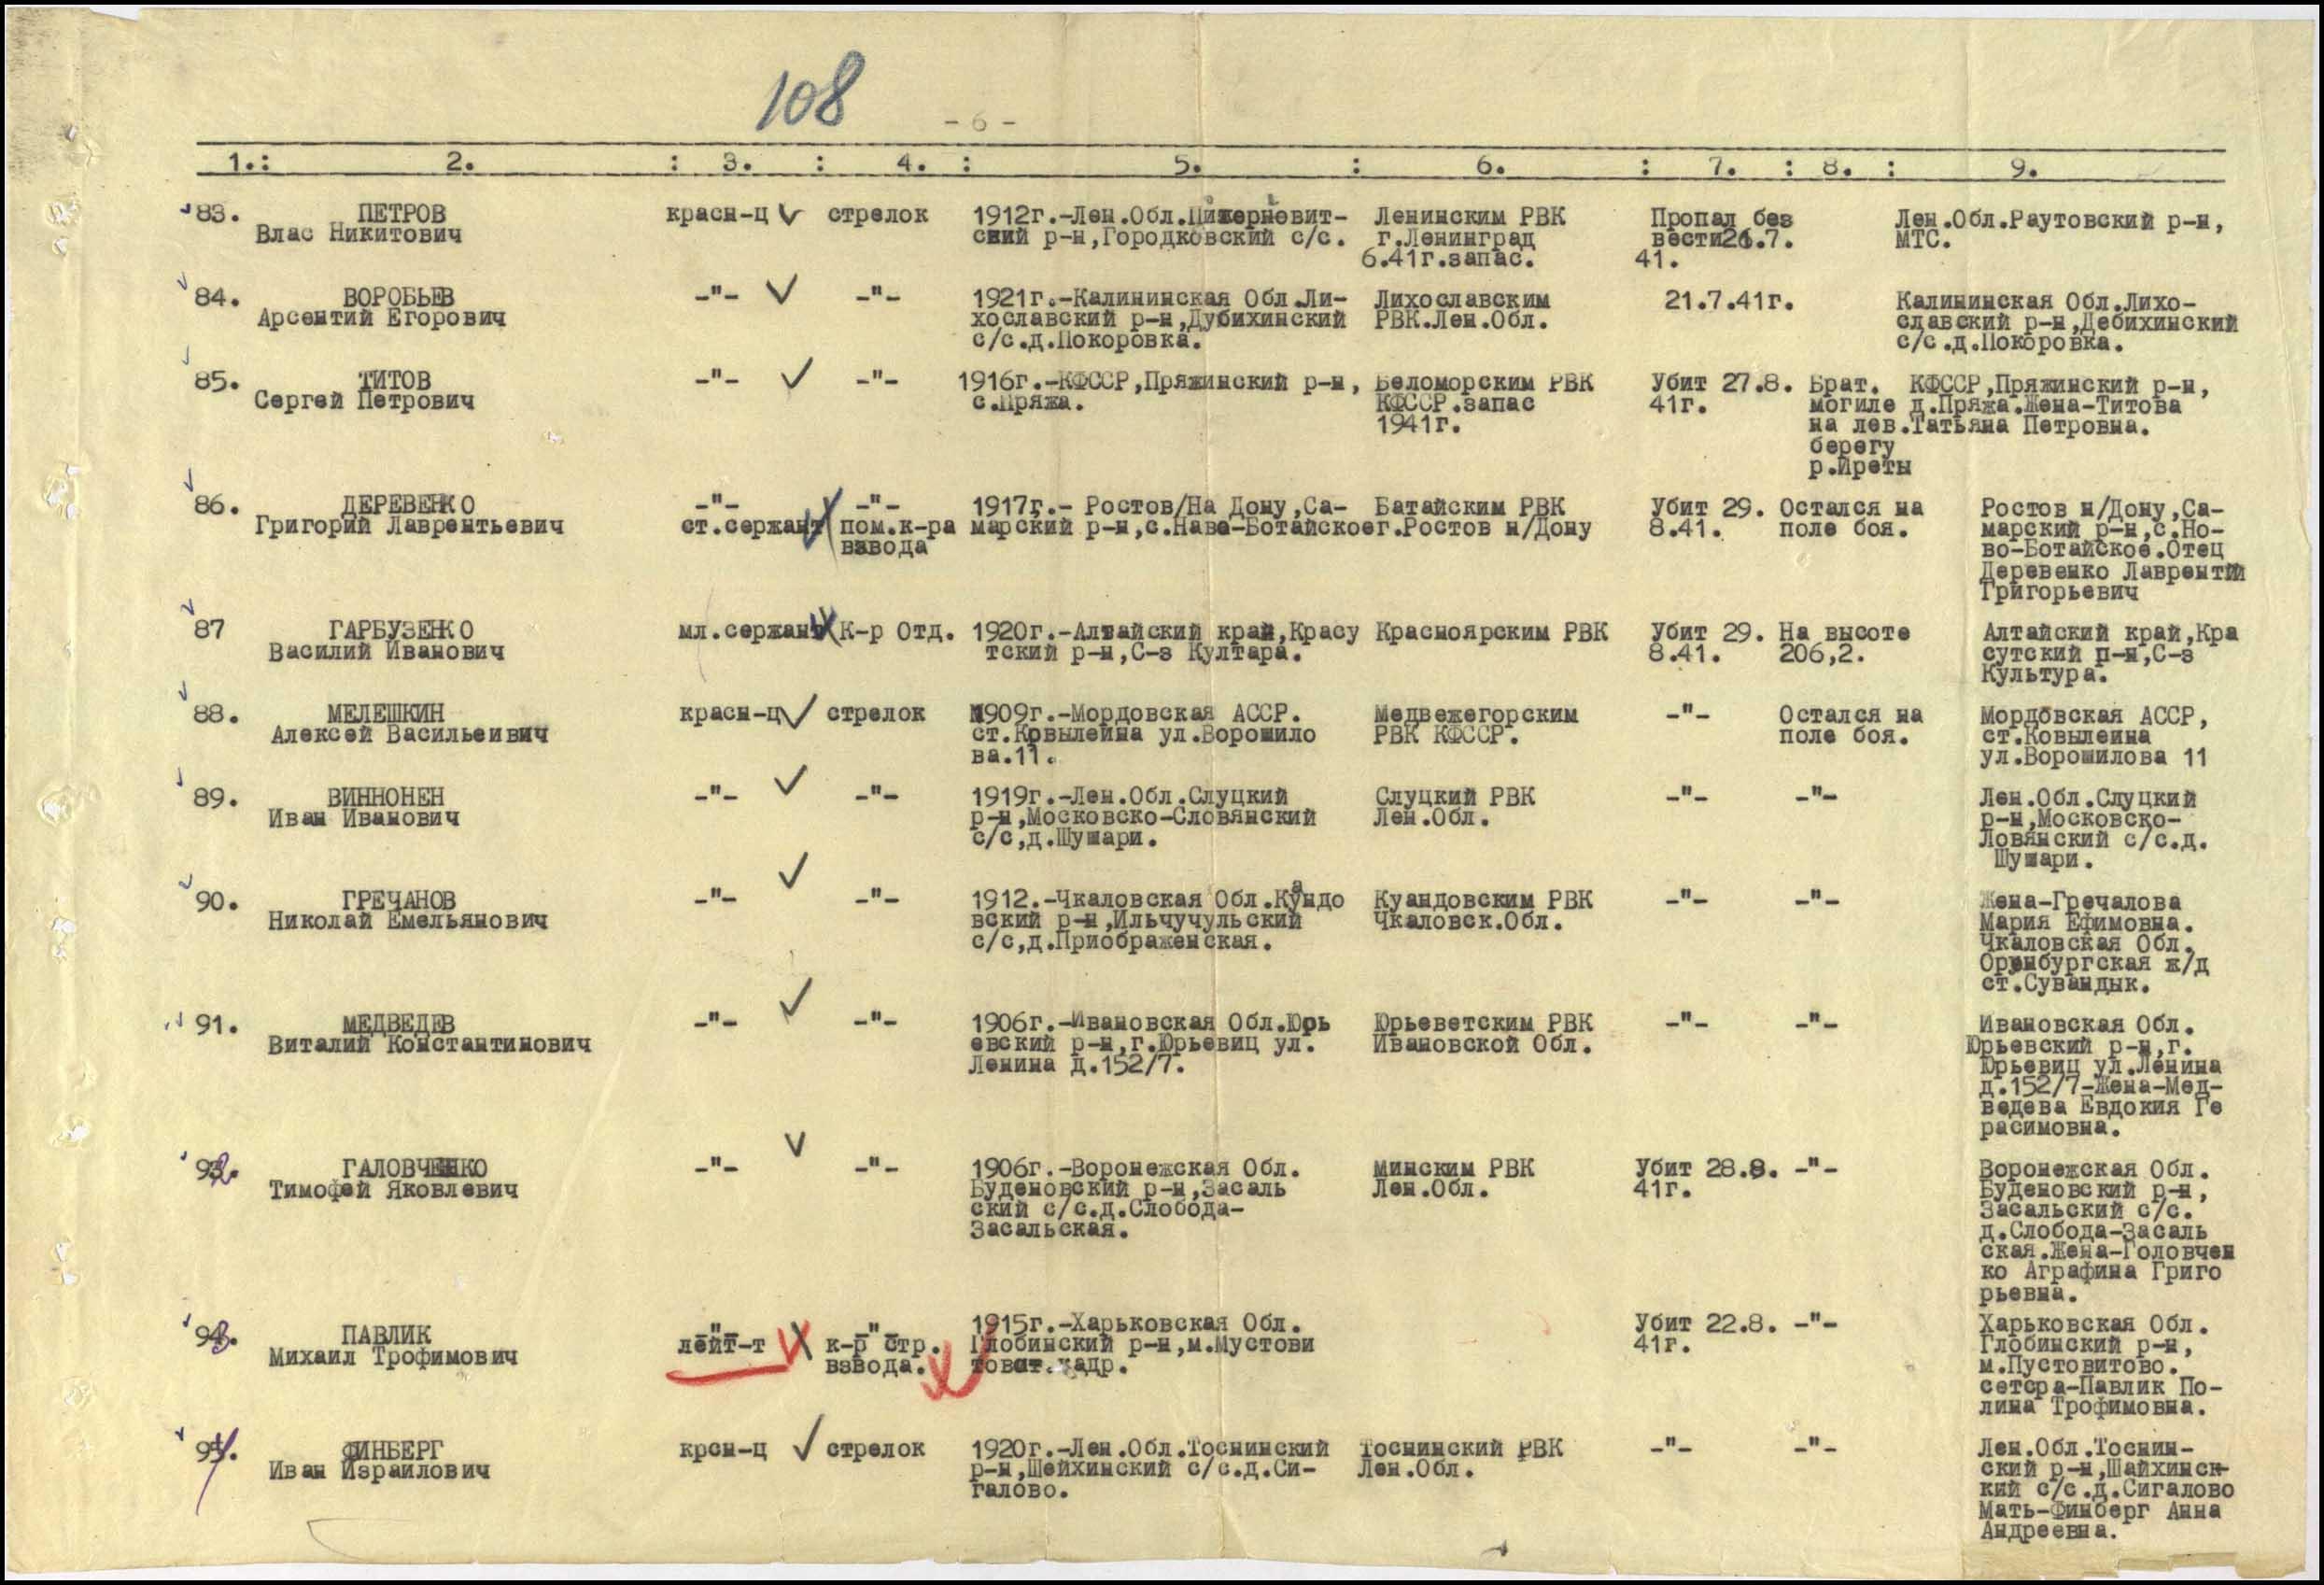 108
- 6 -
1.: 2. : 3. : 4. : 5. : 6. : 7. : 8. : 9.
83. ПЕТРОВ красн-ц стрелок 1912г.-Лен.Обл. Ленинским РВК Пропал без Лен.Обл.Раутовский р-н,
Влас Никитович ский р-н,Городковский с/с. г.Ленинград вести26.7. МТС.
6.41г.запас. 41.
84. ВОРОБЬЕВ -"- -"- 1921г.-Калининская Обл.Ли- Лихославским 21.7.41г. Калининская Обл.Лихо-
Арсентий Егорович хославский р-н,Дубихинский РВК.Лен.Обл. славский р-н,Дебихинский
с/с.д.Покоровка. с/с.д.Покоровка.
85. ТИТОВ -"- -"- 1916г.-КФССР,Пряжинский р-н, Беломорским РВК Убит 27.8. Брат. КФССР,Пряжинский р-н,
Сергей Петрович с.Пряжа. КФССР.запас 41г. могиле д.Пряжа.Жена-Титова
1941г. на лев.Татьяна Петровна.
берегу
р.Иреты
86. ДЕРЕВЕНКО -"- -"- 1917г.- Ростов/На Дону,Са- Батайским РВК Убит 29. Остался на Ростов н/Дону,Са-
Григорий Лаврентьевич ст.сержант пом.к-ра марский р-н,с.Наве-Ботайскоег.Ростов н/Дону 8.41. поле боя. марский р-н,с.Но-
взвода во-Ботайское.Отец
Деревенко Лаврентий
Григорьевич
87 ГАРБУЗЕНКО мл.сержант К-р Отд. 1920г.-Алтайский край,Красу Красноярским РВК Убит 29. На высоте Алтайский край,Кра
Василий Иванович тский р-н,С-з Култара. 8.41. 206,2. сутский р-н,С-з
Культура.
88. МЕЛЕШКИН красн-ц стрелок 1909г.-Мордовская АССР. Медвежегорским -"- Остался на Мордовская АССР,
Алексей Васильеивич ст.Ковылеина ул.Ворошило РВК КФССР. поле боя. ст.Ковылеина
ва.11. ул.Ворошилова 11
89. ВИННОНЕН -"- -"- 1919г.-Лен.Обл.Слуцкий Слуцкий РВК -"- -"- Лен.Обл.Слуцкий
Иван Иванович р-н,Московско-Словянский Лен.Обл. р-н,Московско-
с/с,д.Шушари. Ловянский с/с.д.
Шушари.
90. ГРЕЧАНОВ -"- -"- 1912.-Чкаловская Обл.Куандо Куандовским РВК -"- -"- Жена-Гречалова
Николай Емельянович вский р-н,Ильчучульский Чкаловск.Обл. Мария Ефимовна.
с/с,д.Приображенская. Чкаловская Обл.
Оренбургская ж/д
ст.Сувандык.
91. МЕДВЕДЕВ -"- -"- 1906г.-Ивановская Обл.Юрь Юрьеветским РВК -"- -"- Ивановская Обл.
Виталий Константинович евский р-н,г.Юрьевиц ул. Ивановской Обл. Юрьевский р-н,г.
Ленина д.152/7. Юрьевиц ул.Ленина
д.152/7-Жена-Мед-
ведева Евдокия Ге
расимовна.
92. ГАЛОВЧЕНКО -"- -"- 1906г.-Воронежская Обл. Минским РВК Убит 28.8. -"- Воронежская Обл.
Тимофей Яковлевич Буденовский р-н,Засаль Лен.Обл. 41г. Буденовский р-н,
ский с/с.д.Слобода- Засальский с/с.
Засальская. д.Слобода-Засаль
ская.Жена-Головчен
ко Аграфина Григо
рьевна.
93. ПАВЛИК -"- -"- 1915г.-Харьковская Обл. Убит 22.8. -"- Харьковская Обл.
Михаил Трофимович лейт-т к-р стр. Глобинский р-н,м.Мустови 41г. Глобинский р-н,
взвода. кадр. м.Пустовитово.
сетсра-Павлик По-
лина Трофимовна.
94. ФИНБЕРГ крсн-ц стрелок 1920г.-Лен.Обл.Тоснинский Тоснинский РВК -"- -"- Лен.Обл.Тоснин-
Иван Израилович р-н,Шейхинский с/с.д.Си- Лен.Обл. ский р-н,Шайхинск-
галово. кий с/с.д.Сигалово
Мать-Финберг Анна
Андреевна.